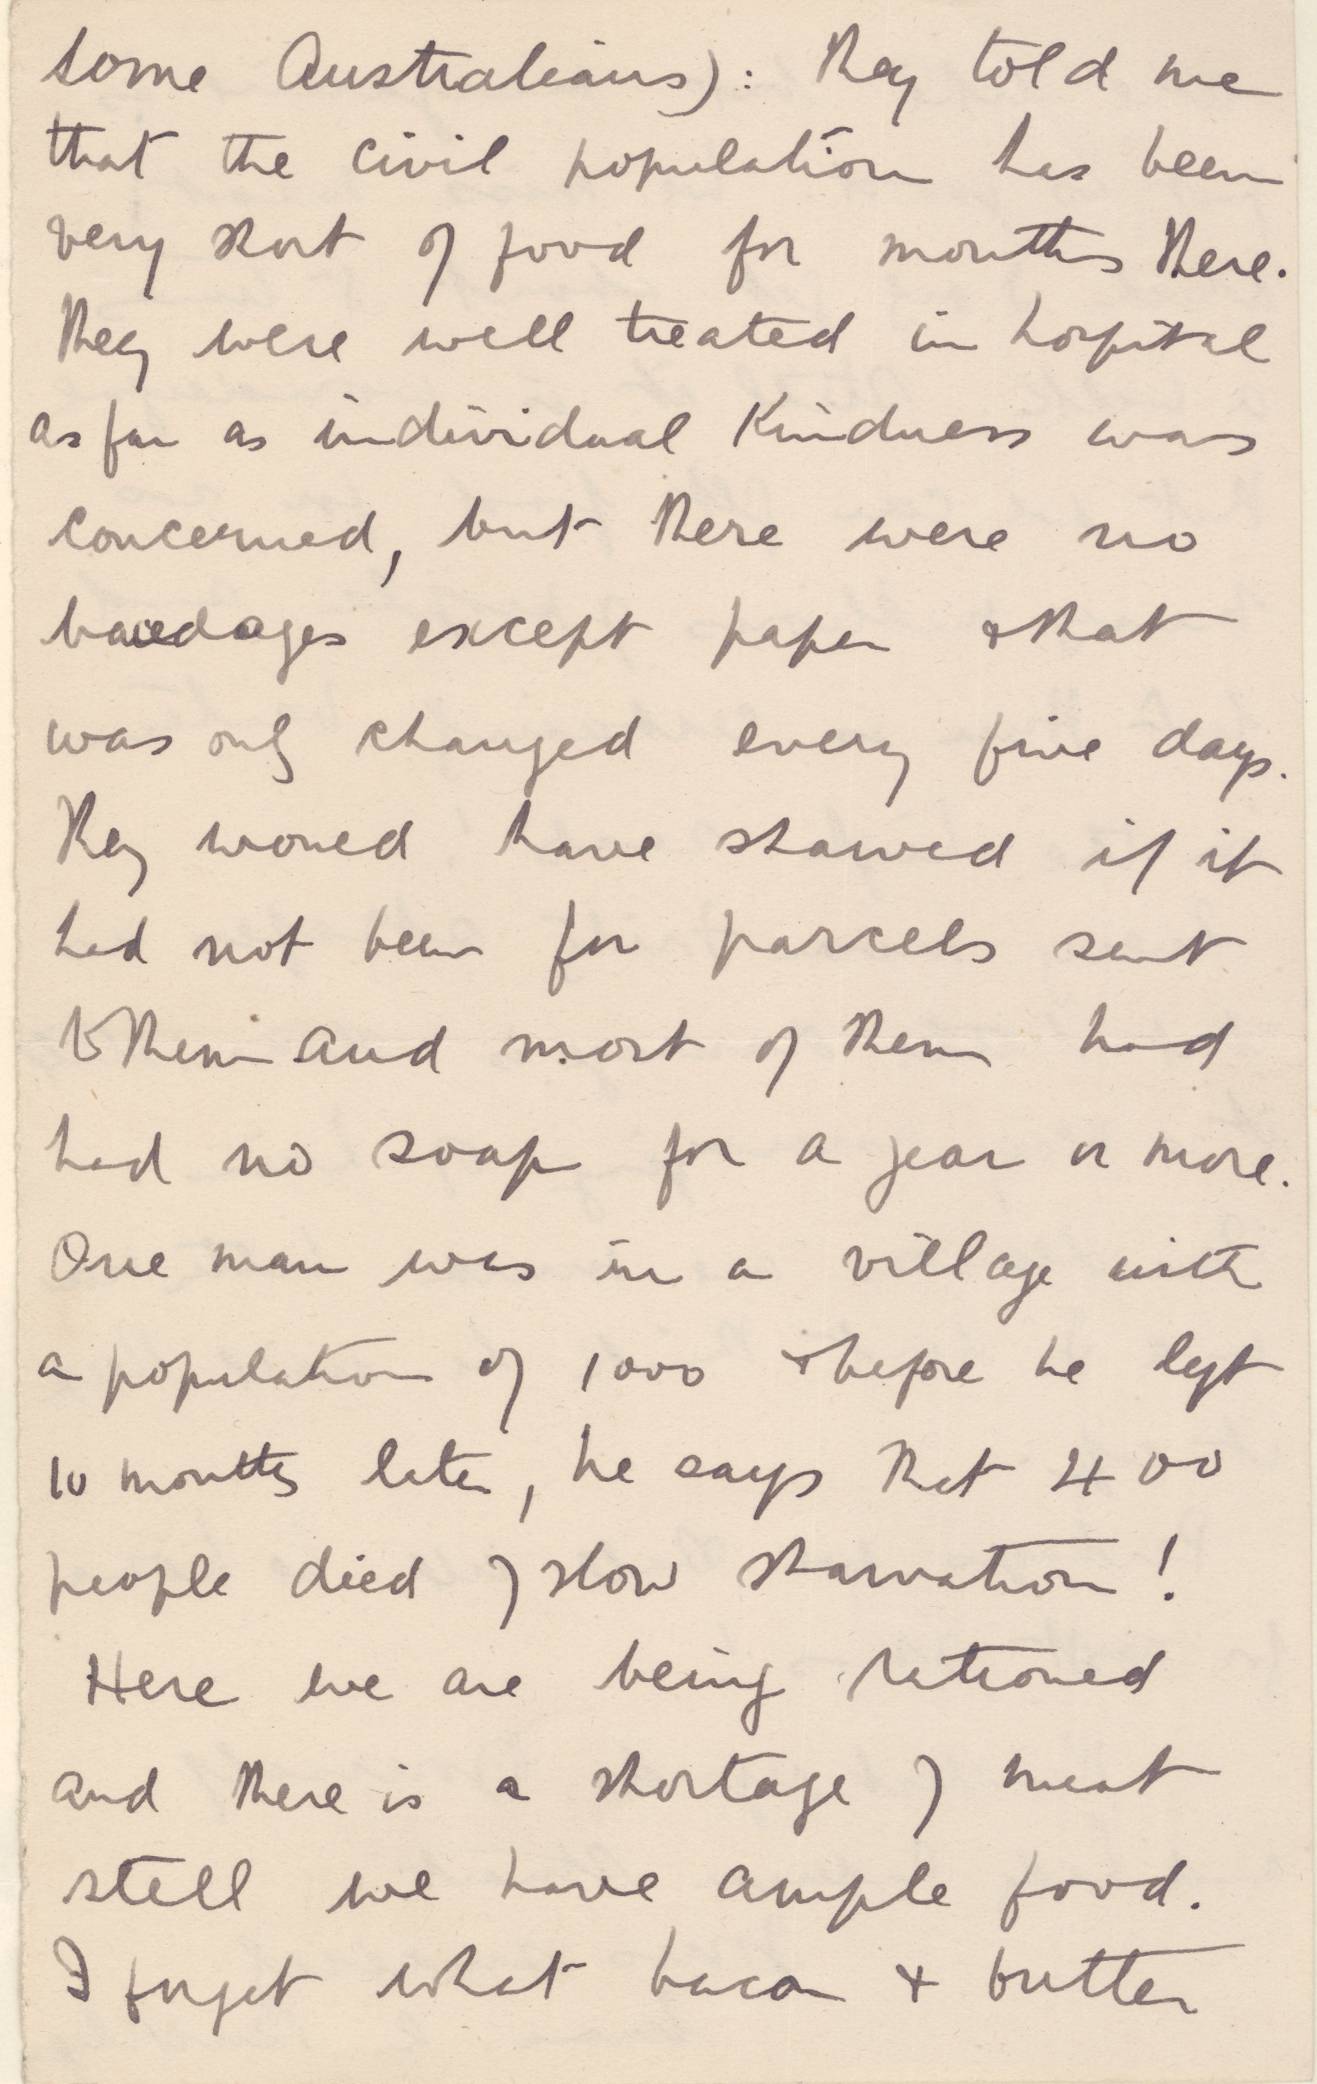 some Australians): They told me
that the civil population has been
very short of food for months there.
They were well treated in hospital
as far as individual kindness was
concerned, but there were no
bandages except paper & that
was only changed every five days.
They would have starved if it
had not been for parcels sent
to them and most of them had
had no soap for a year or more.
One man was in a village with
a population of 1000 & before he left
10 months later, he says that 400
people died of slow starvation!
Here we are being rationed
and there is a shortage of meat
still we have ample food.
I forget what bacon & butter